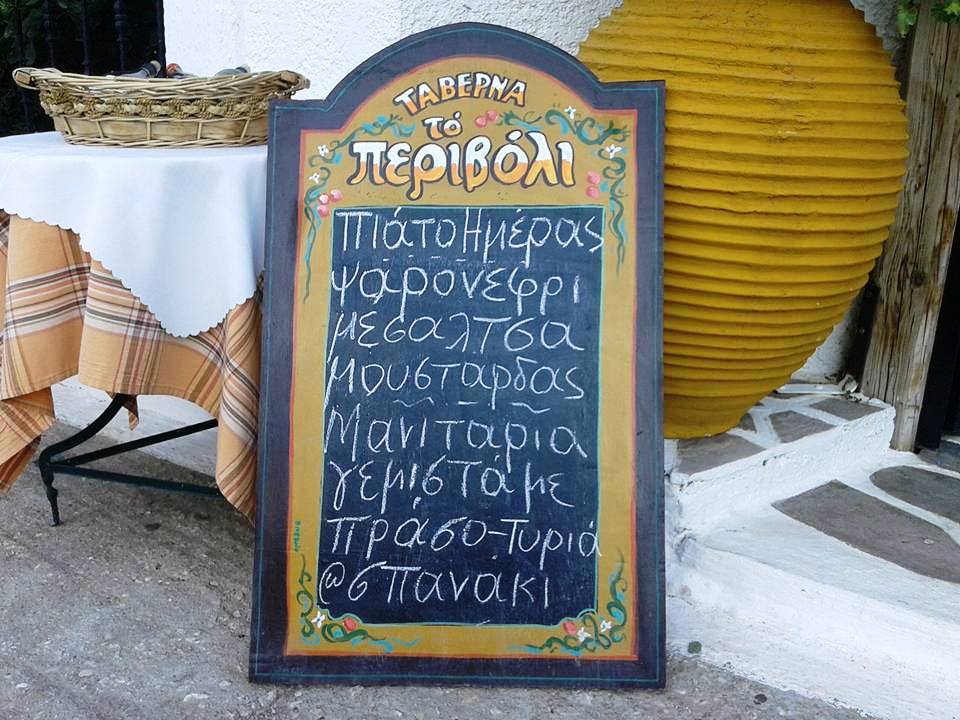 ΤΑΒΕΡΝΑ
τό
περιβόλι
Πιάτο Ημέρας
Ψαρονεφρι
με σαλτσα
μουσταρδας
Μανιταρια
γεμιστά με
Πράσο-Τυριά
@ σπανάκι